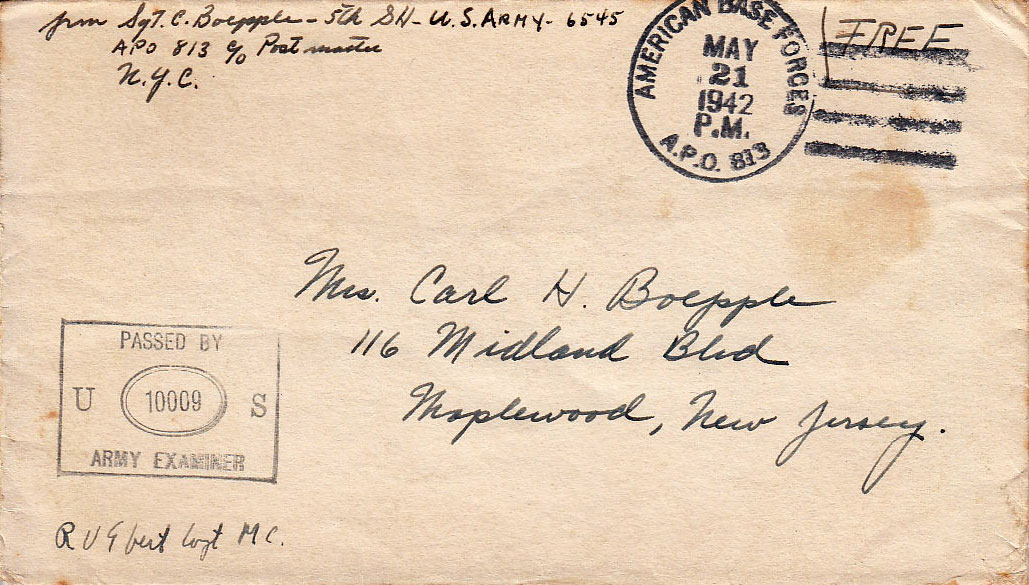 from Sgt. C. Boepple - 5th SH - U.S. ARMY - 6545
APO 813 c/o Postmaster
N.Y.C.
AMERICAN BASE FORCES
MAY
21
1942
P.M.
A.P.O. 813
FREE
Mrs. Carl H. Boepple
116 Midland Blvd
Maplewood, New Jersey.
PASSED BY
U 10009 S
ARMY EXAMINER
R V Ebert Capt MC.